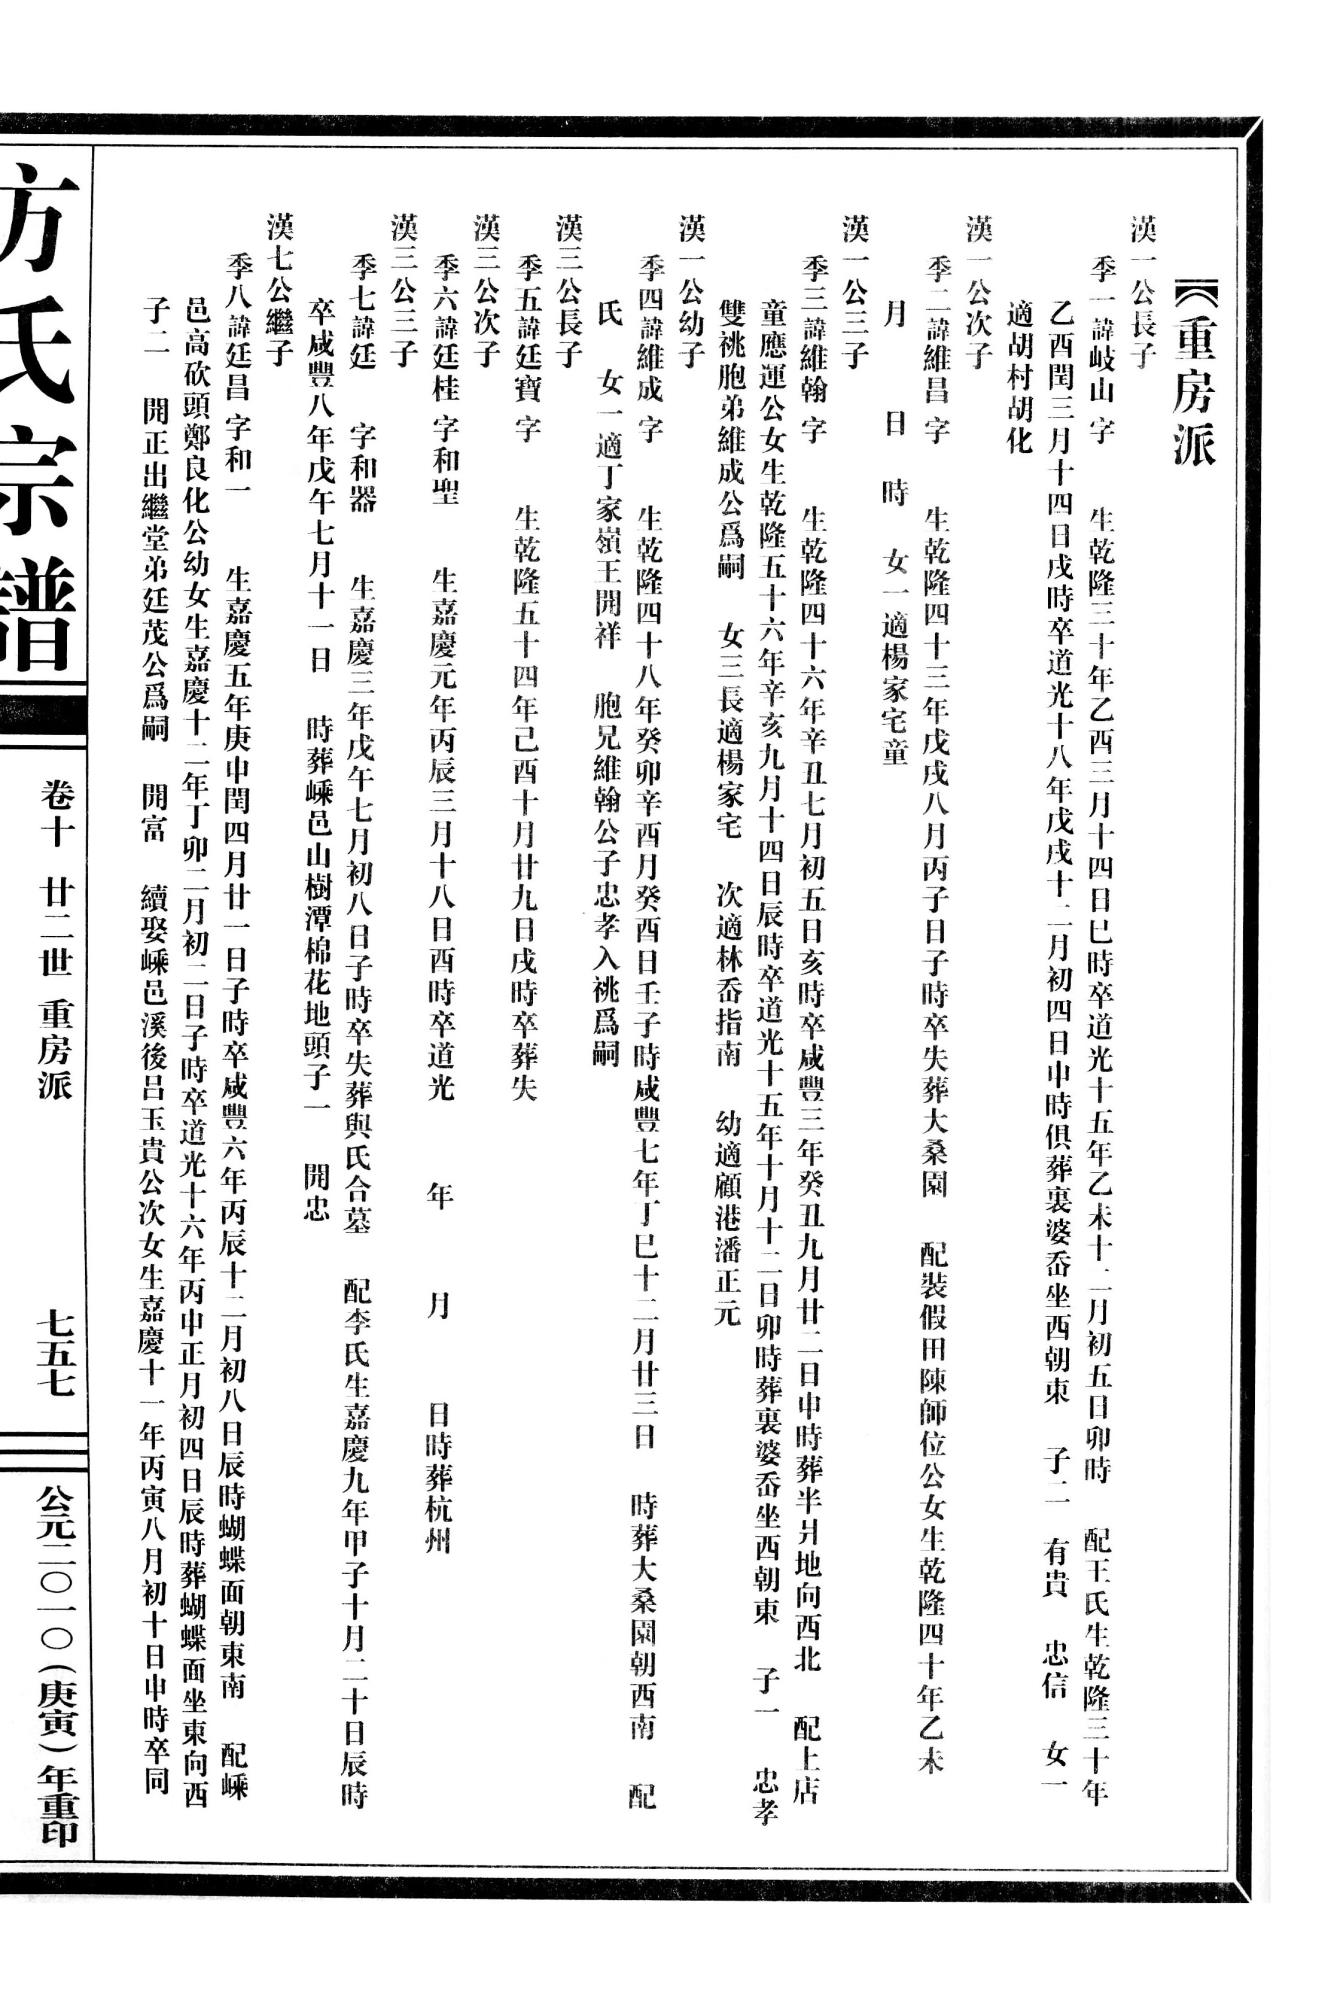 重房派
漢一公長子
季一諱岐山 字 生乾隆三十年乙酉三月十四日巳時卒道光十五年乙未十二月初五日卯時 配王氏生乾隆三十年
乙酉閏三月十四日戌時卒道光十八年戊戌十二月初四日申時俱葬裏婆岙坐西朝東 子二 有貴 忠信 女一
適胡村胡化
漢一公次子
季二諱維昌 字 生乾隆四十三年戊戌八月丙子日子時卒失葬大桑園 配裝假田陳師位公女生乾隆四十年乙未
月 日 時 女一適楊家宅童
漢一公三子
季三諱維翰 字 生乾隆四十六年辛丑七月初五日亥時卒咸豐三年癸丑九月廿二日申時葬半爿地向西北 配上店
童應運公女生乾隆五十六年辛亥九月十四日辰時卒道光十五年十月十二日卯時葬裏婆岙坐西朝東 子一 忠孝
雙祧胞弟維成公爲嗣 女三長適楊家宅 次適林岙指南 幼適顧港潘正元
漢一公幼子
季四諱維成 字 生乾隆四十八年癸卯辛酉月癸酉日壬子時咸豐七年丁巳十二月廿三日 時葬大桑園朝西南 配
氏 女一適丁家嶺王開祥 胞兄維翰公子忠孝入祧爲嗣
漢三公長子
季五諱廷寶 字 生乾隆五十四年己酉十月廿九日戌時卒葬失
漢三公次子
季六諱廷桂 字和聖 生嘉慶元年丙辰三月十八日酉時卒道光 年 月 日時葬杭州
漢三公三子
季七諱廷 字和器 生嘉慶三年戊午七月初八日子時卒失葬與氏合墓 配李氏生嘉慶九年甲子十月二十日辰時
卒咸豐八年戊午七月十一日 時葬嵊邑山樹潭棉花地頭子一 開忠
漢七公繼子
季八諱廷昌 字和一 生嘉慶五年庚申閏四月廿一日子時卒咸豐六年丙辰十二月初八日辰時蝴蝶面朝東南 配嵊
邑高砍頭鄭良化公幼女生嘉慶十二年丁卯二月初二日子時卒道光十六年丙申正月初四日辰時葬蝴蝶面坐東向西
子二 開正出繼堂弟廷茂公爲嗣 開富 續娶嵊邑溪後呂玉貴公次女生嘉慶十一年丙寅八月初十日申時卒同
方氏宗譜
卷十 廿二世 重房派
七五七
公元二〇一〇（庚寅）年重印